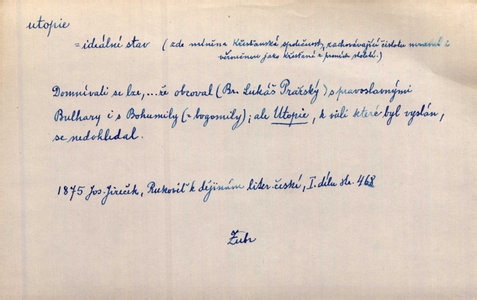 utopie
= ideální stav (zde míněna křesťanská společnost, zachovávající čistotu mravů i
věroučnou jako křesťané v prvních stoletích.)
Domnívati se lze,... že obcoval (Br. Lukáš Pražský) s pravoslavnými
Bulhary i s Bohumily (= bogomily); ale Utopie, k vůli které byl vyslán,
se nedohledal.
1875 Jos. Jireček, Rukověť k dějinám liter. české, I. dílu str. 468
Zub